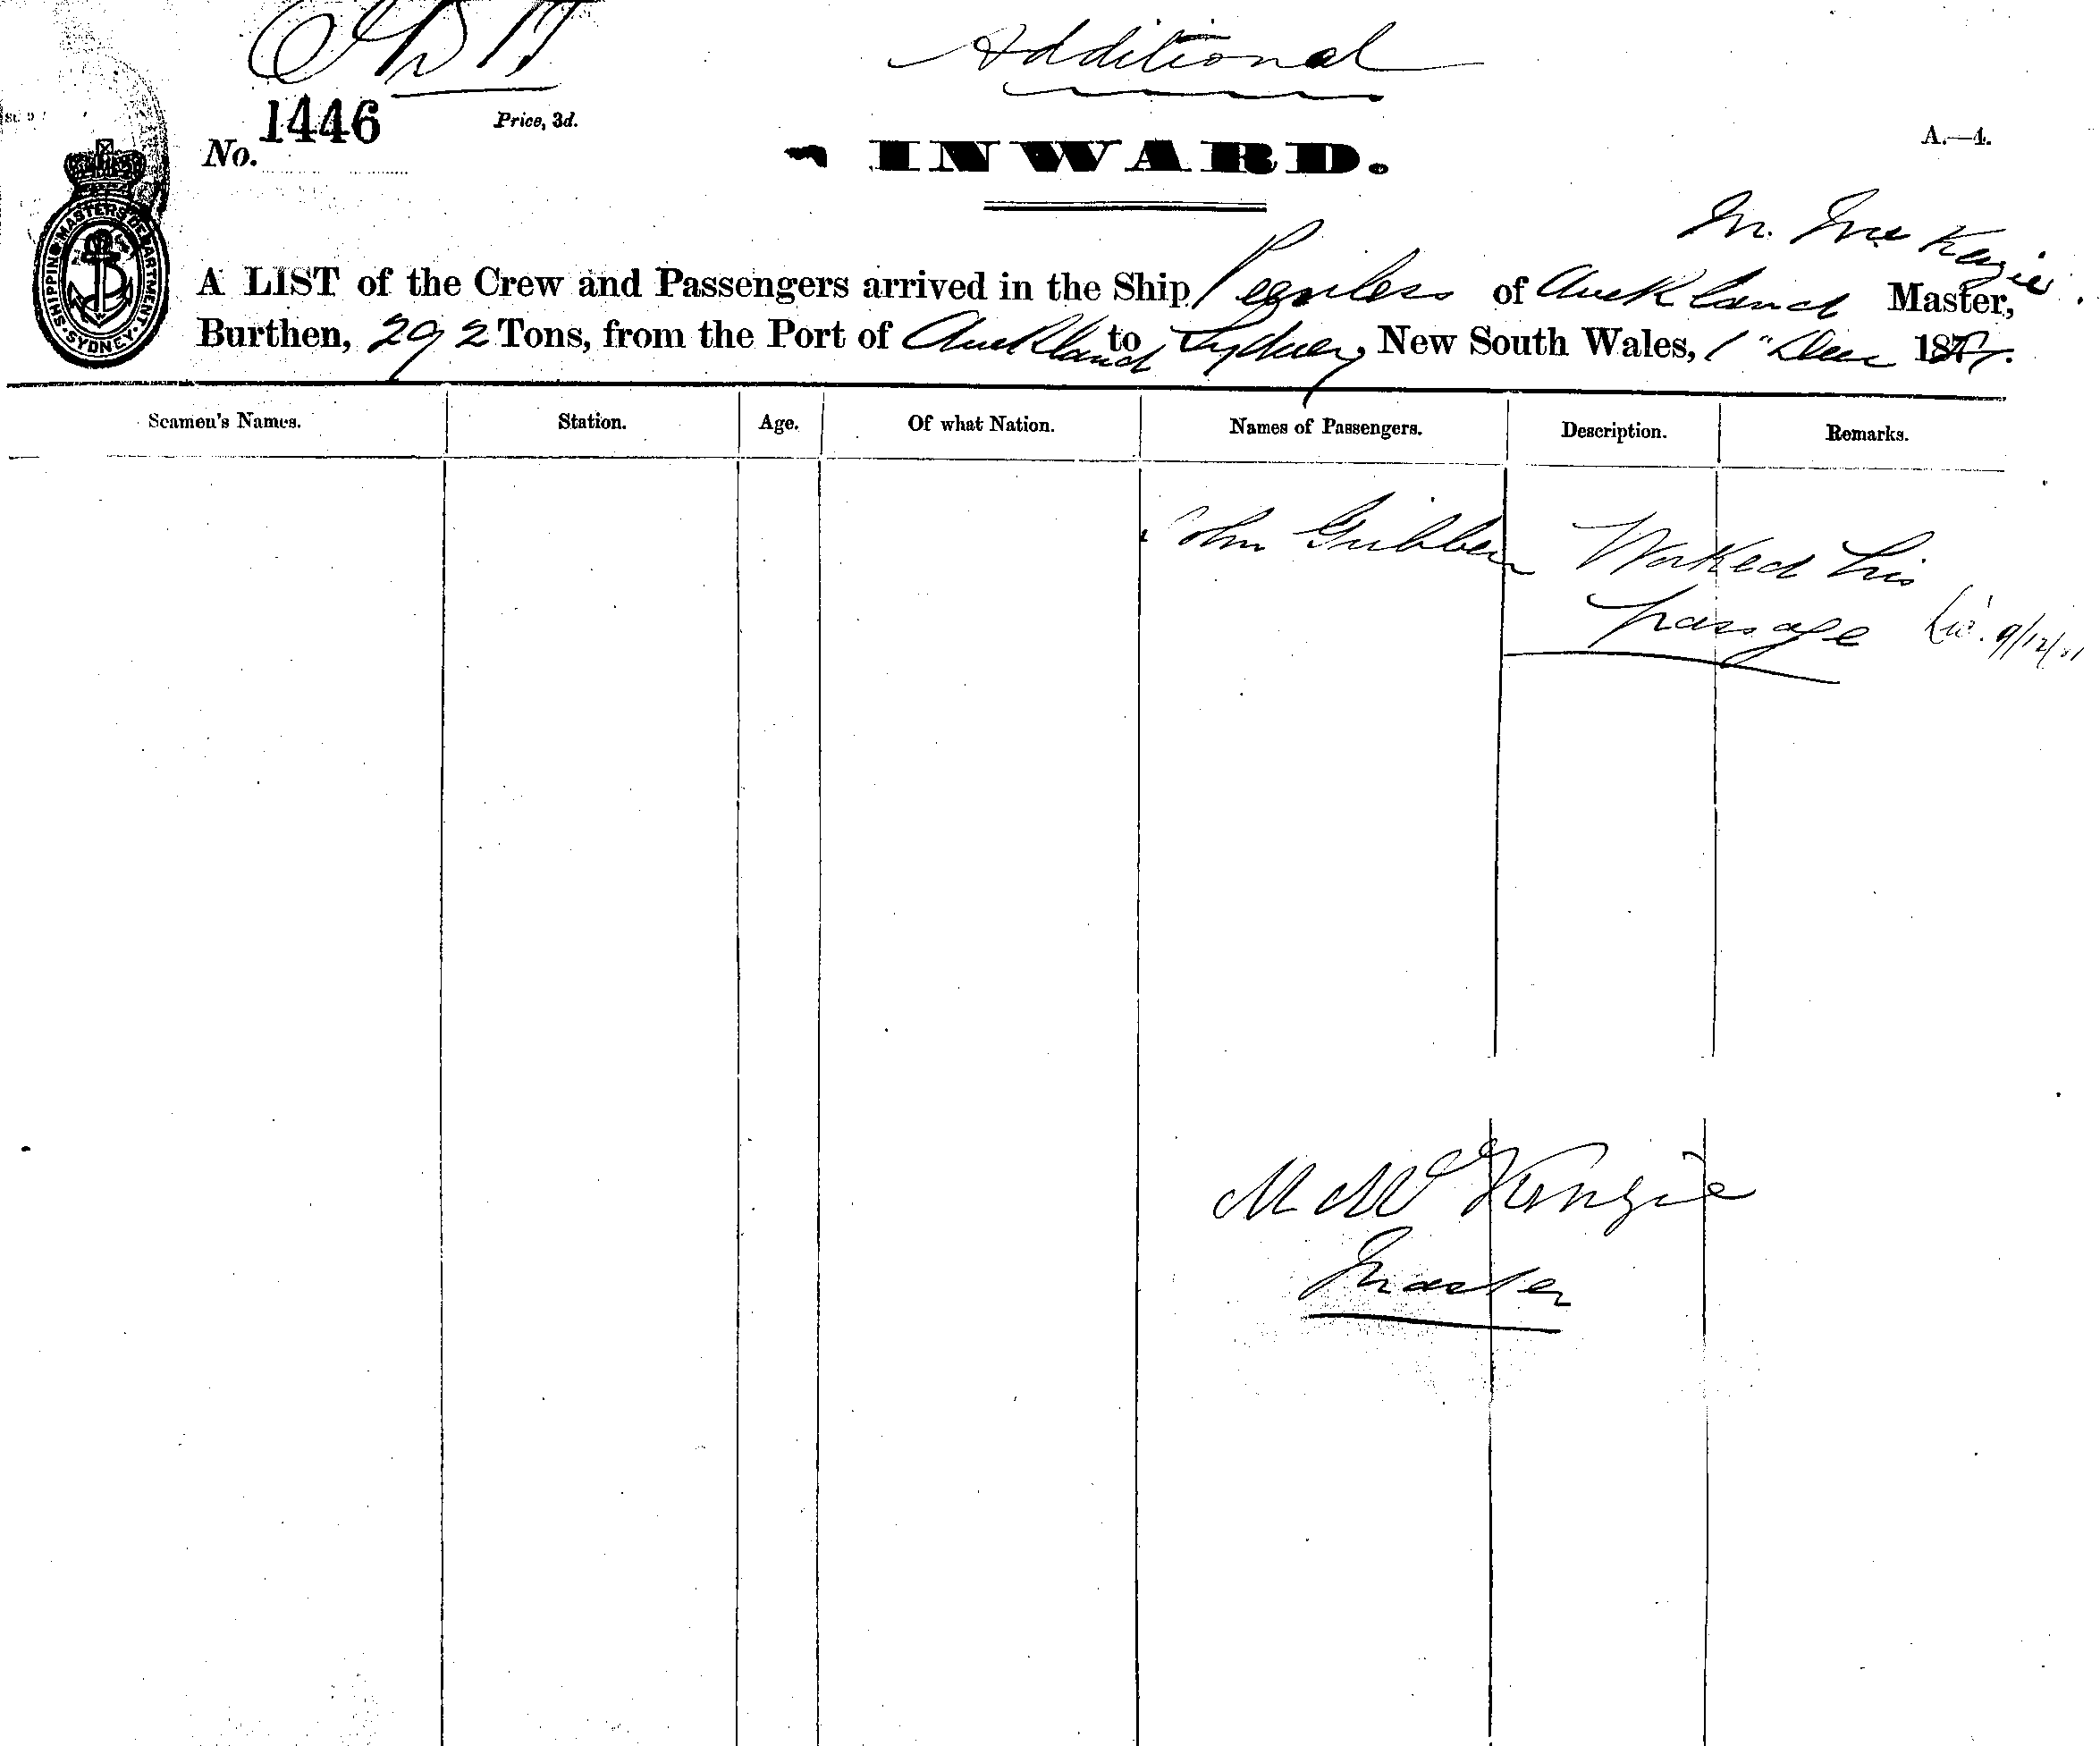 Additional
1446
No.
Price, 3d.
INWARD.
A.—4.
SHIPPING MASTERS DEPARTMENT. SYDNEY.
M. McKenzie
A LIST of the Crew and Passengers arrived in the Ship Peerless of Auckland Master,
Burthen, 292 Tons, from the Port of Auckland to Sydney, New South Wales, 1" Dec 18
Seamen's Names. Station. Age. Of what Nation. Names of Passengers. Description. Remarks.
John Gribben Worked his
passage
M McKenzie
Master